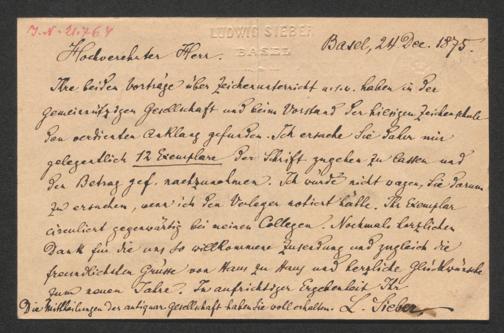 J.N. 21.764
LUDWIG SIEBER
BASEL
Basel, 24 Dec. 1875.
Hochverehrter Herr.
Ihre beiden Vorträge über Zeichenunterricht u.s.w. haben in der
gemeinnützigen Gesellschaft und beim Vorstand der hiesigen Zeichenschule
den verdienten Anklang gefunden. Ich ersuche Sie daher mir
gelegentlich 12 Exemplare der Schrift zugehen zu lassen und
den Betrag gef. nachzunehmen. Ich würde nicht wagen, Sie darum
zu ersuchen, wenn ich den Verleger notiert hätte. Ihr Exemplar
circuliert gegenwärtig bei meinen Collegen. Nochmals herzlichen
Dank für die uns so willkommene Zusendung und zugleich die
freundlichsten Grüsse von Haus zu Haus und herzliche Glückwünsche
zum neuen Jahre. In aufrichtiger Ergebenheit Ihr
Die Mittheilungen der antiquar. Gesellschaft haben Sie voll erhalten. L. Sieber